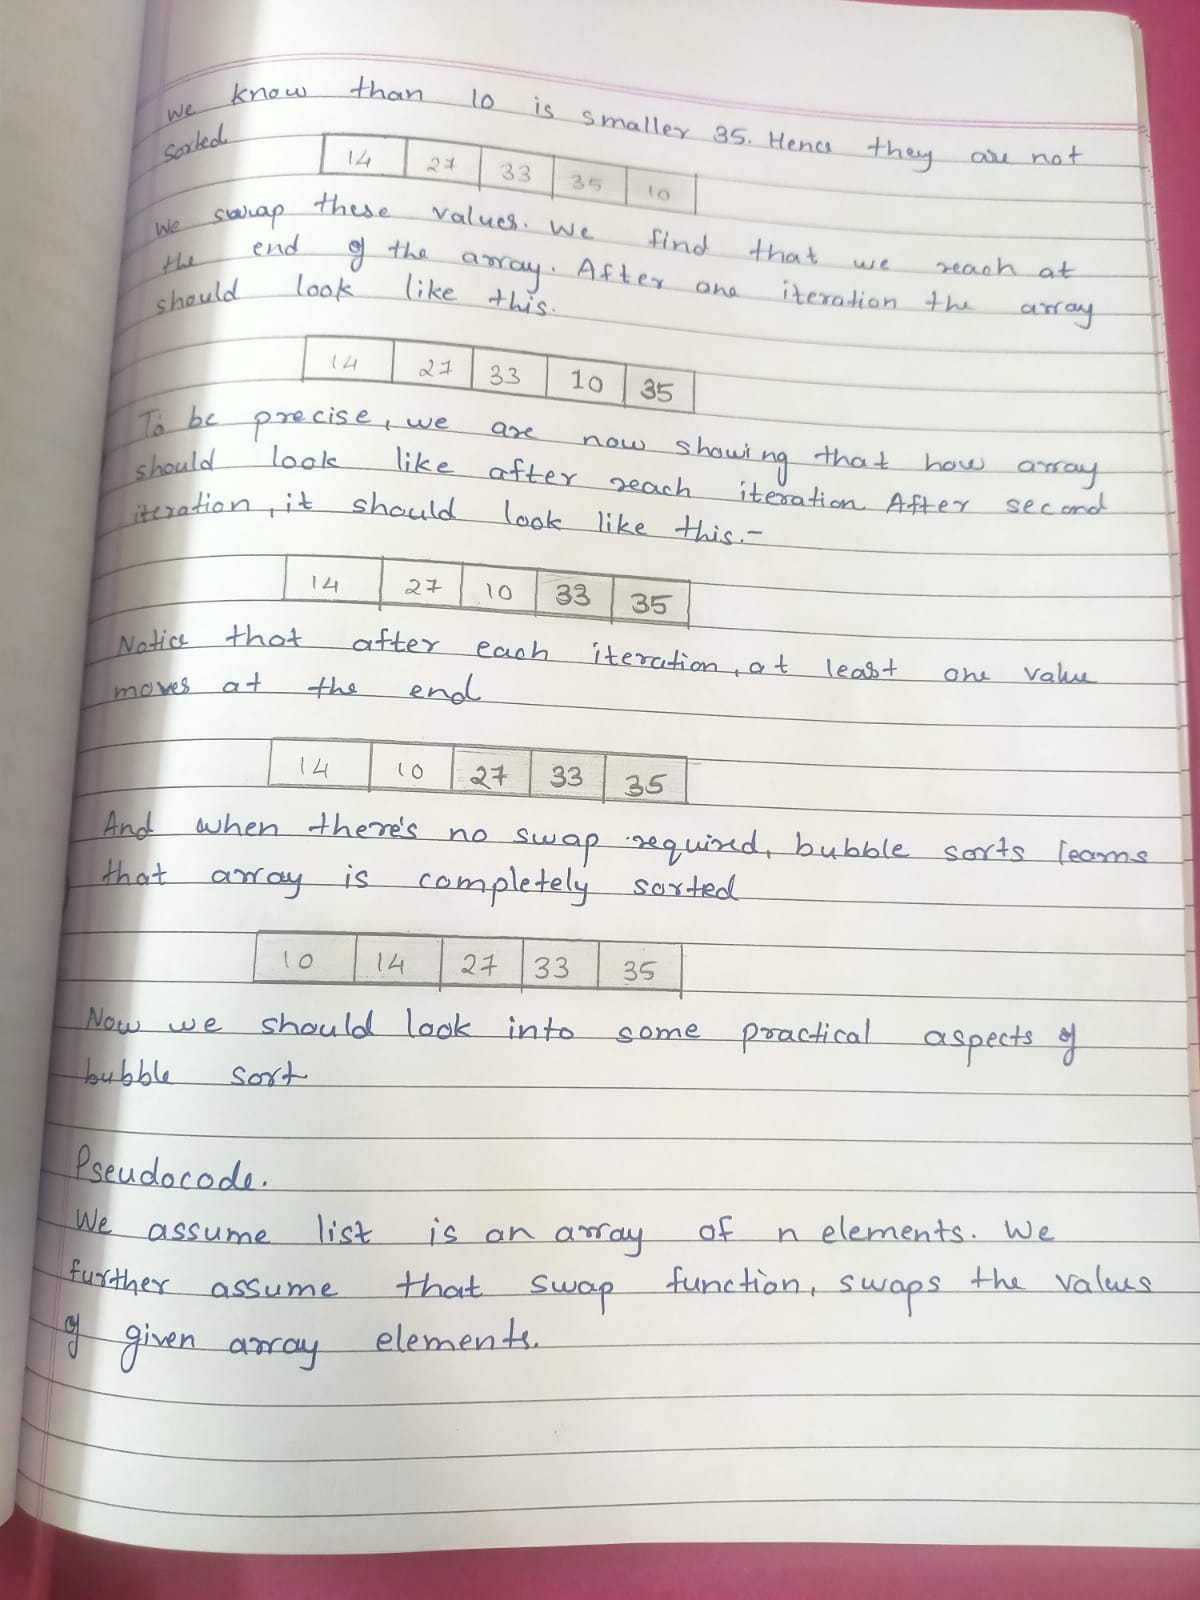 We know than 10 is smaller 35. Hence they are not
sorted
14 27 33 35 10
We swap these values. We find that we reach at
the end of the array. After one iteration the array
should look like this.
14 27 33 10 35
To be precise, we are now showing that how array
should look like after reach iteration. After second
iteration, it should look like this.-
14 27 10 33 35
Notice that after each iteration, at least one value
moves at the end
14 10 27 33 35
And when there's no swap required, bubble sorts learns
that array is completely sorted
10 14 27 33 35
Now we should look into some practical aspects of
bubble sort
Pseudocode.
We assume list is an array of n elements. We
further assume that swap function, swaps the values
of given array elements.